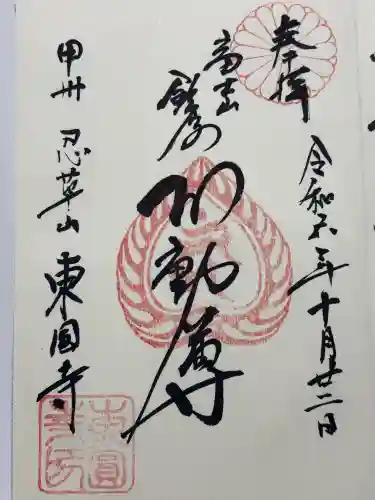 奉拝
令和六年十月廿二日
富士山
剣劔
不動尊
甲州 忍草山 東圓寺